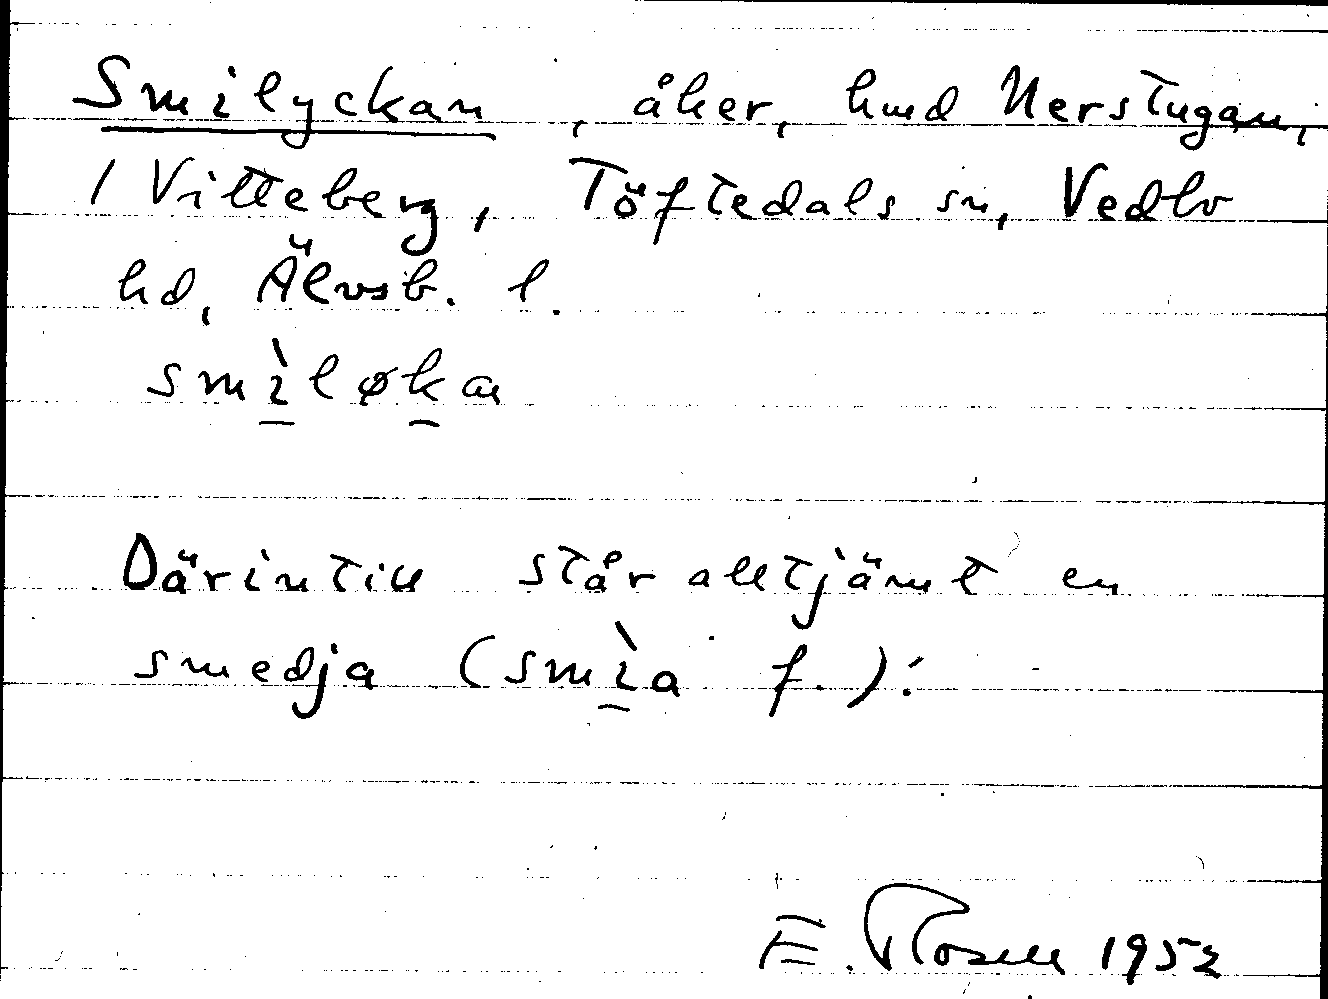 Smilyckan, åker, hmd Nerstugan,
1 Vitteberg, Töftedals sn, Vedbo
hd, Älvsb. l.
smìløkа
Därintill står alltjämt en
smedja (smìa f.).
E. Rosell 1952